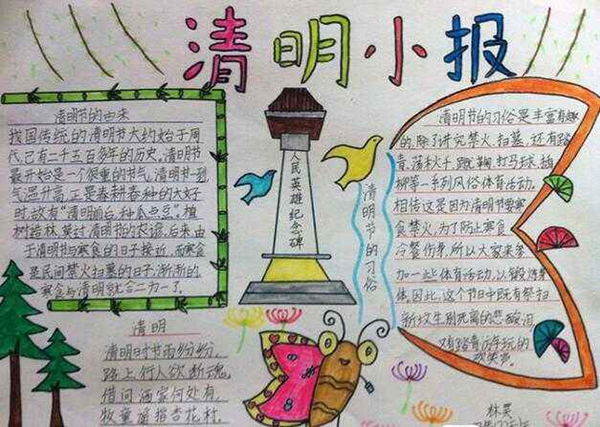 清明小报
清明节的由来
我国传统的清明节大约始于周
代,已有二千五百多年的历史,清明节
最开始是一个很重的节气,清明节一到,
气温升高,正是春耕春种的大好
时,故有“清明前后,种瓜点豆”。植
树造林,莫过清明的农谚,后来,由
于清明节与寒食的日子接近,而寒食
是民间禁火扫墓的日子,渐渐的,
寒食与清明就合二为一了。
清明
清明时节雨纷纷,
路上行人欲断魂,
借问酒家何处有,
牧童遥指杏花村。
人民英雄纪念碑
清明节的习俗
清明节的习俗是丰富有趣
的,除了讲究禁火、扫墓,还有踏
青、荡秋千、蹴鞠、打马球、插
柳等一系列风俗体育活动。
相传这是因为清明节要寒
食禁火,为了防止寒食
冷餐伤身,所以大家来参
加一些体育活动,以锻炼身
体,因此,这个节中既有祭扫
新坟生别死离的悲酸泪
又有踏青游玩的
欢笑声。
林昊